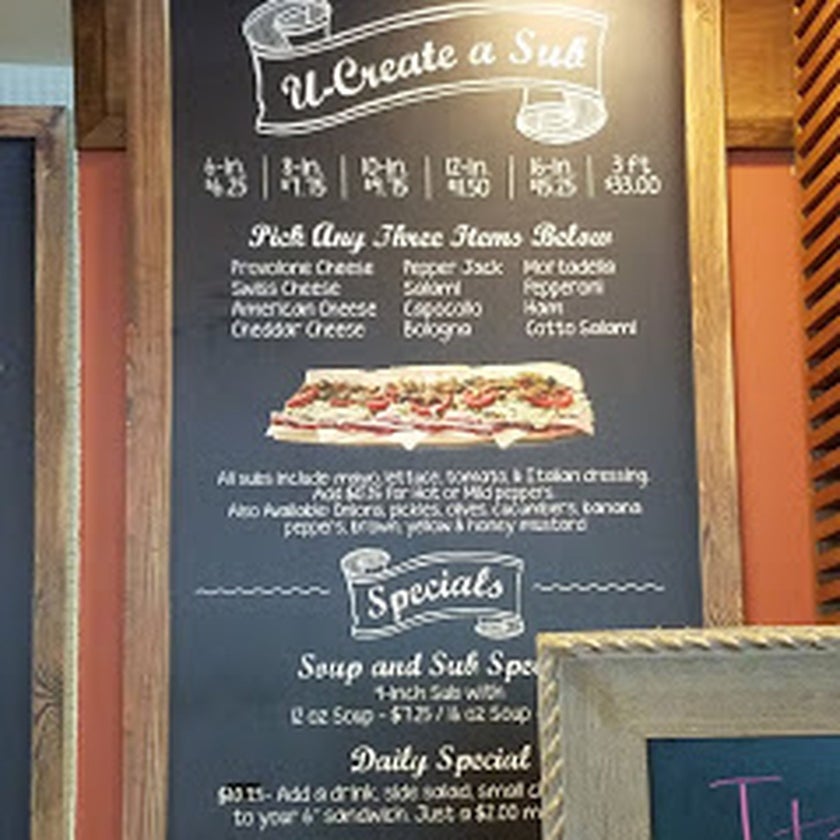 U-Create a Sub
6-In. 8-In. 10-In. 12-In. 16-In. 3 ft.
$6.25 $7.75 $9.75 $11.50 $15.25 $33.00
Pick Any Three Items Below
Provolone Cheese Pepper Jack Mortadella
Swiss Cheese Salami Pepperoni
American Cheese Capocollo Ham
Cheddar Cheese Bologna Cotto Salami
All subs include mayo, lettuce, tomato, & Italian dressing.
Add for Hot or Mild peppers.
Also Available: Onions, pickles, olives, cucumbers, banana
peppers, brown, yellow & honey mustard
Specials
Soup and Sub Spe
4-Inch Sub with
12 oz Soup - $7.25 / 16 oz Soup
Daily Special
Add a drink, side salad, small c
to your 6" sandwich. Just a $2.00 m